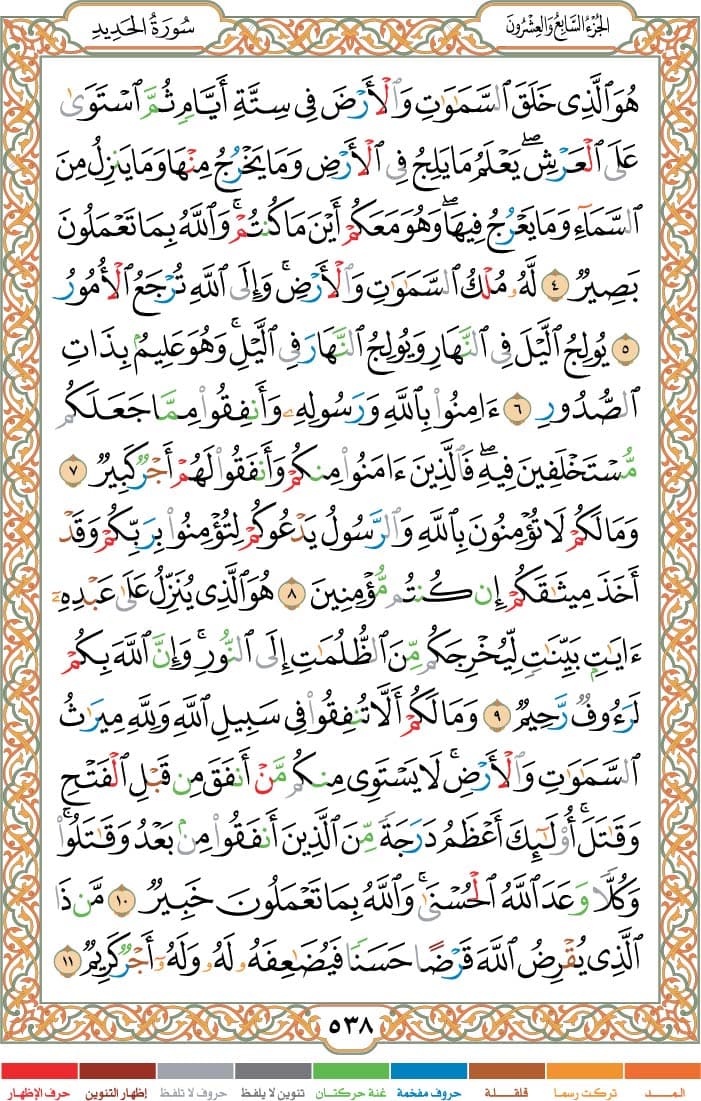 الجُزْءُ السَّابِعُ وَالعِشْرُونَ
سُورَةُ الحَدِيدِ
هُوَ ٱلَّذِى خَلَقَ ٱلسَّمَٰوَٰتِ وَٱلْأَرْضَ فِى سِتَّةِ أَيَّامٍ ثُمَّ ٱسْتَوَىٰ
عَلَى ٱلْعَرْشِ ۖ يَعْلَمُ مَا يَلِجُ فِى ٱلْأَرْضِ وَمَا يَخْرُجُ مِنْهَا وَمَا يَنزِلُ مِنَ
ٱلسَّمَآءِ وَمَا يَعْرُجُ فِيهَا ۖ وَهُوَ مَعَكُمْ أَيْنَ مَا كُنتُمْ ۚ وَٱللَّهُ بِمَا تَعْمَلُونَ
بَصِيرٌ ٤ لَّهُۥ مُلْكُ ٱلسَّمَٰوَٰتِ وَٱلْأَرْضِ ۚ وَإِلَى ٱللَّهِ تُرْجَعُ ٱلْأُمُورُ
٥ يُولِجُ ٱلَّيْلَ فِى ٱلنَّهَارِ وَيُولِجُ ٱلنَّهَارَ فِى ٱلَّيْلِ ۚ وَهُوَ عَلِيمٌۢ بِذَاتِ
ٱلصُّدُورِ ٦ ءَامِنُوا۟ بِٱللَّهِ وَرَسُولِهِۦ وَأَنفِقُوا۟ مِمَّا جَعَلَكُم
مُّسْتَخْلَفِينَ فِيهِ ۖ فَٱلَّذِينَ ءَامَنُوا۟ مِنكُمْ وَأَنفَقُوا۟ لَهُمْ أَجْرٌ كَبِيرٌ ٧
وَمَا لَكُمْ لَا تُؤْمِنُونَ بِٱللَّهِ وَٱلرَّسُولُ يَدْعُوكُمْ لِتُؤْمِنُوا۟ بِرَبِّكُمْ وَقَدْ
أَخَذَ مِيثَٰقَكُمْ إِن كُنتُم مُّؤْمِنِينَ ٨ هُوَ ٱلَّذِى يُنَزِّلُ عَلَىٰ عَبْدِهِۦٓ
ءَايَٰتٍۭ بَيِّنَٰتٍ لِّيُخْرِجَكُم مِّنَ ٱلظُّلُمَٰتِ إِلَى ٱلنُّورِ ۚ وَإِنَّ ٱللَّهَ بِكُمْ
لَرَءُوفٌ رَّحِيمٌ ٩ وَمَا لَكُمْ أَلَّا تُنفِقُوا۟ فِى سَبِيلِ ٱللَّهِ وَلِلَّهِ مِيرَٰثُ
ٱلسَّمَٰوَٰتِ وَٱلْأَرْضِ ۚ لَا يَسْتَوِى مِنكُم مَّنْ أَنفَقَ مِن قَبْلِ ٱلْفَتْحِ
وَقَٰتَلَ ۚ أُو۟لَٰٓئِكَ أَعْظَمُ دَرَجَةً مِّنَ ٱلَّذِينَ أَنفَقُوا۟ مِنۢ بَعْدُ وَقَٰتَلُوا۟ ۚ
وَكُلًّا وَعَدَ ٱللَّهُ ٱلْحُسْنَىٰ ۚ وَٱللَّهُ بِمَا تَعْمَلُونَ خَبِيرٌ ١٠ مَّن ذَا
ٱلَّذِى يُقْرِضُ ٱللَّهَ قَرْضًا حَسَنًا فَيُضَٰعِفَهُۥ لَهُۥ وَلَهُۥٓ أَجْرٌ كَرِيمٌ ١١
٥٣٨
المــــد تركت رسما قلقــلة حروف مفخمة غنة حركتـان تنوين لا يلفظ حروف لا تلفظ إظهار التنوين حرف الإظهار